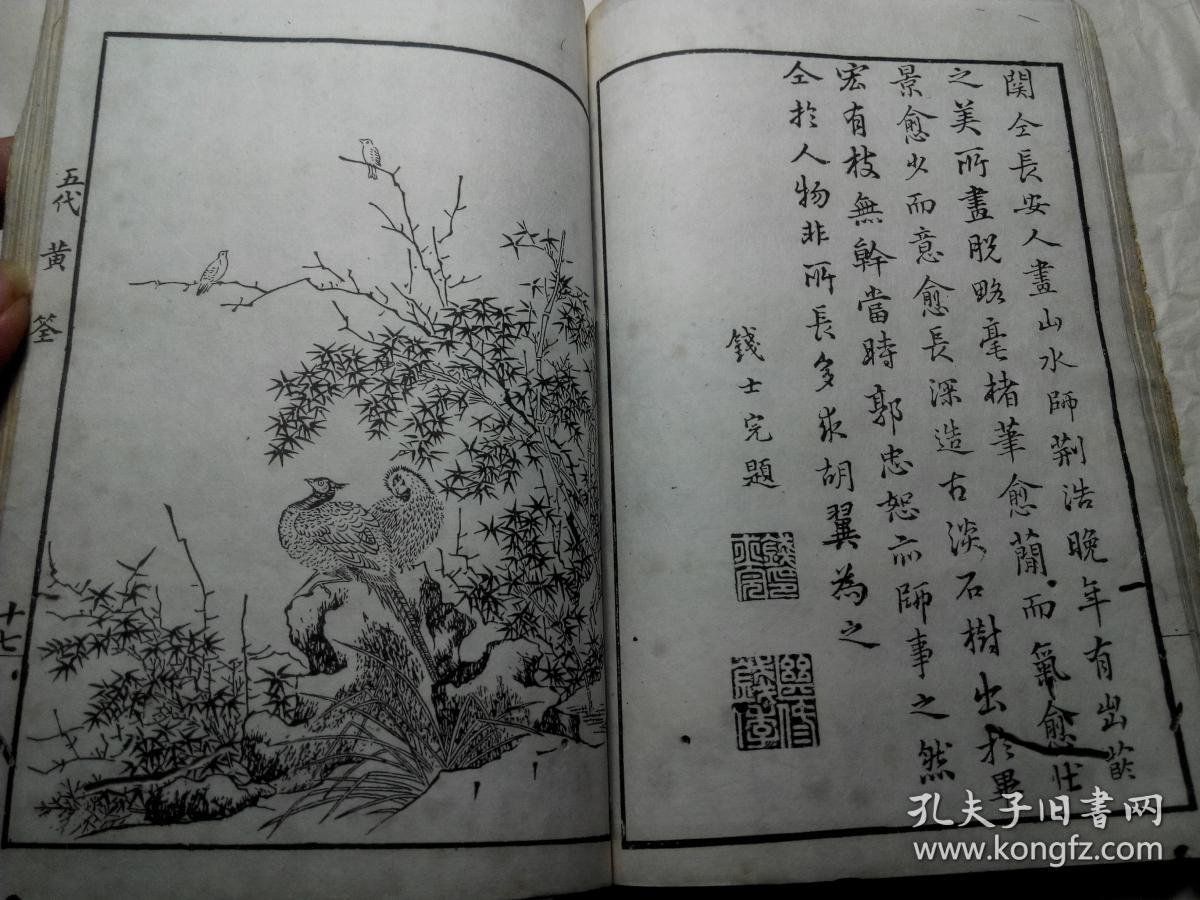 関仝長安人畫山水師荆浩晚年有出
之美所畫脫略毫楮筆愈蕑而氣愈壯
景愈少而意愈長深造古淡石樹出於畢
宏有枝無幹當時郭忠恕亦師事之然
仝於人物非所長多求胡翼為之
錢士完題
五代 黄筌
十七
孔夫子旧书网
www.kongfz.com